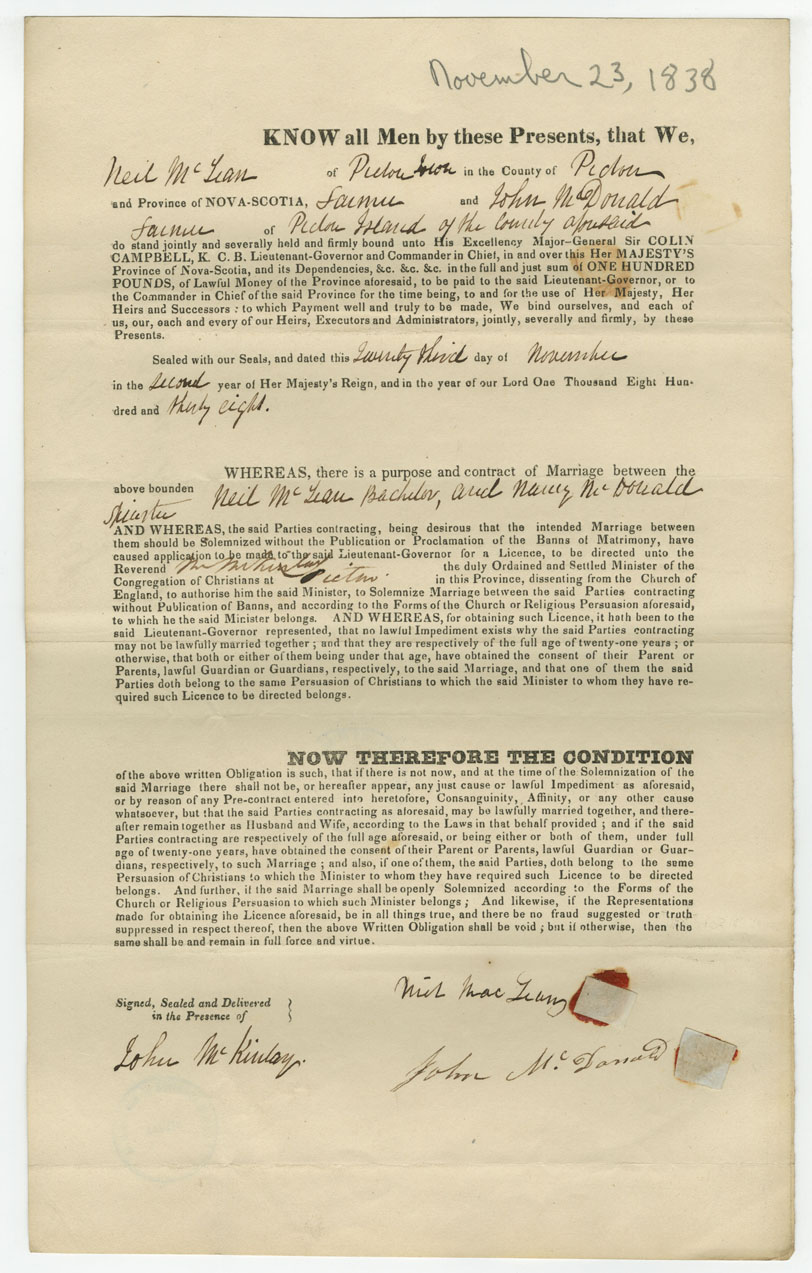 November 23, 1838
KNOW all Men by these Presents, that We,
Neil McLean of Pictou Town in the County of Pictou
and Province of NOVA-SCOTIA, Farmer and John McDonald
Farmer of Pictou Island of the County aforesaid
do stand jointly and severally held and firmly bound unto His Excellency Major-General Sir COLIN
CAMPBELL, K. C. B. Lieutenant-Governor and Commander in Chief, in and over this Her MAJESTY'S
Province of Nova-Scotia, and its Dependencies, &c. &c. &c. in the full and just sum of ONE HUNDRED
POUNDS, of Lawful Money of the Province aforesaid, to be paid to the said Lieutenant-Governor, or to
the Commander in Chief of the said Province for the time being, to and for the use of Her Majesty, Her
Heirs and Successors : to which Payment well and truly to be made, We bind ourselves, and each of
us, our, each and every of our Heirs, Executors and Administrators, jointly, severally and firmly, by these
Presents.
Sealed with our Seals, and dated this Twenty third day of November
in the Second year of Her Majesty's Reign, and in the year of our Lord One Thousand Eight Hun-
dred and thirty eight.
WHEREAS, there is a purpose and contract of Marriage between the
above bounden Neil McLean Bachelor, and Nancy McDonald
Spinster
AND WHEREAS, the said Parties contracting, being desirous that the intended Marriage between
them should be Solemnized without the Publication or Proclamation of the Banns of Matrimony, have
caused application to be made to the said Lieutenant-Governor for a Licence, to be directed unto the
Reverend McKinlay the duly Ordained and Settled Minister of the
Congregation of Christians at Pictou in this Province, dissenting from the Church of
England, to authorise him the said Minister, to Solemnize Marriage between the said Parties contracting
without Publication of Banns, and according to the Forms of the Church or Religious Persuasion aforesaid,
to which he the said Minister belongs. AND WHEREAS, for obtaining such Licence, it hath been to the
said Lieutenant-Governor represented, that no lawful Impediment exists why the said Parties contracting
may not be lawfully married together ; and that they are respectively of the full age of twenty-one years ; or
otherwise, that both or either of them being under that age, have obtained the consent of their Parent or
Parents, lawful Guardian or Guardians, respectively, to the said Marriage, and that one of them the said
Parties doth belong to the same Persuasion of Christians to which the said Minister to whom they have re-
quired such Licence to be directed belongs.
NOW THEREFORE THE CONDITION
of the above written Obligation is such, that if there is not now, and at the time of the Solemnization of the
said Marriage there shall not be, or hereafter appear, any just cause or lawful Impediment as aforesaid,
or by reason of any Pre-contract entered into heretofore, Consanguinity, Affinity, or any other cause
whatsoever, but that the said Parties contracting as aforesaid, may be lawfully married together, and there-
after remain together as Husband and Wife, according to the Laws in that behalf provided ; and if the said
Parties contracting are respectively of the full age aforesaid, or being either or both of them, under full
age of twenty-one years, have obtained the consent of their Parent or Parents, lawful Guardian or Guar-
dians, respectively, to such Marriage ; and also, if one of them, the said Parties, doth belong to the same
Persuasion of Christians to which the Minister to whom they have required such Licence to be directed
belongs. And further, if the said Marriage shall be openly Solemnized according to the Forms of the
Church or Religious Persuasion to which such Minister belongs ; And likewise, if the Representations
made for obtaining the Licence aforesaid, be in all things true, and there be no fraud suggested or truth
suppressed in respect thereof, then the above Written Obligation shall be void ; but if otherwise, then the
same shall be and remain in full force and virtue.
Signed, Sealed and Delivered
in the Presence of
John McKinlay.
Niel Mac Lean
John McDonald